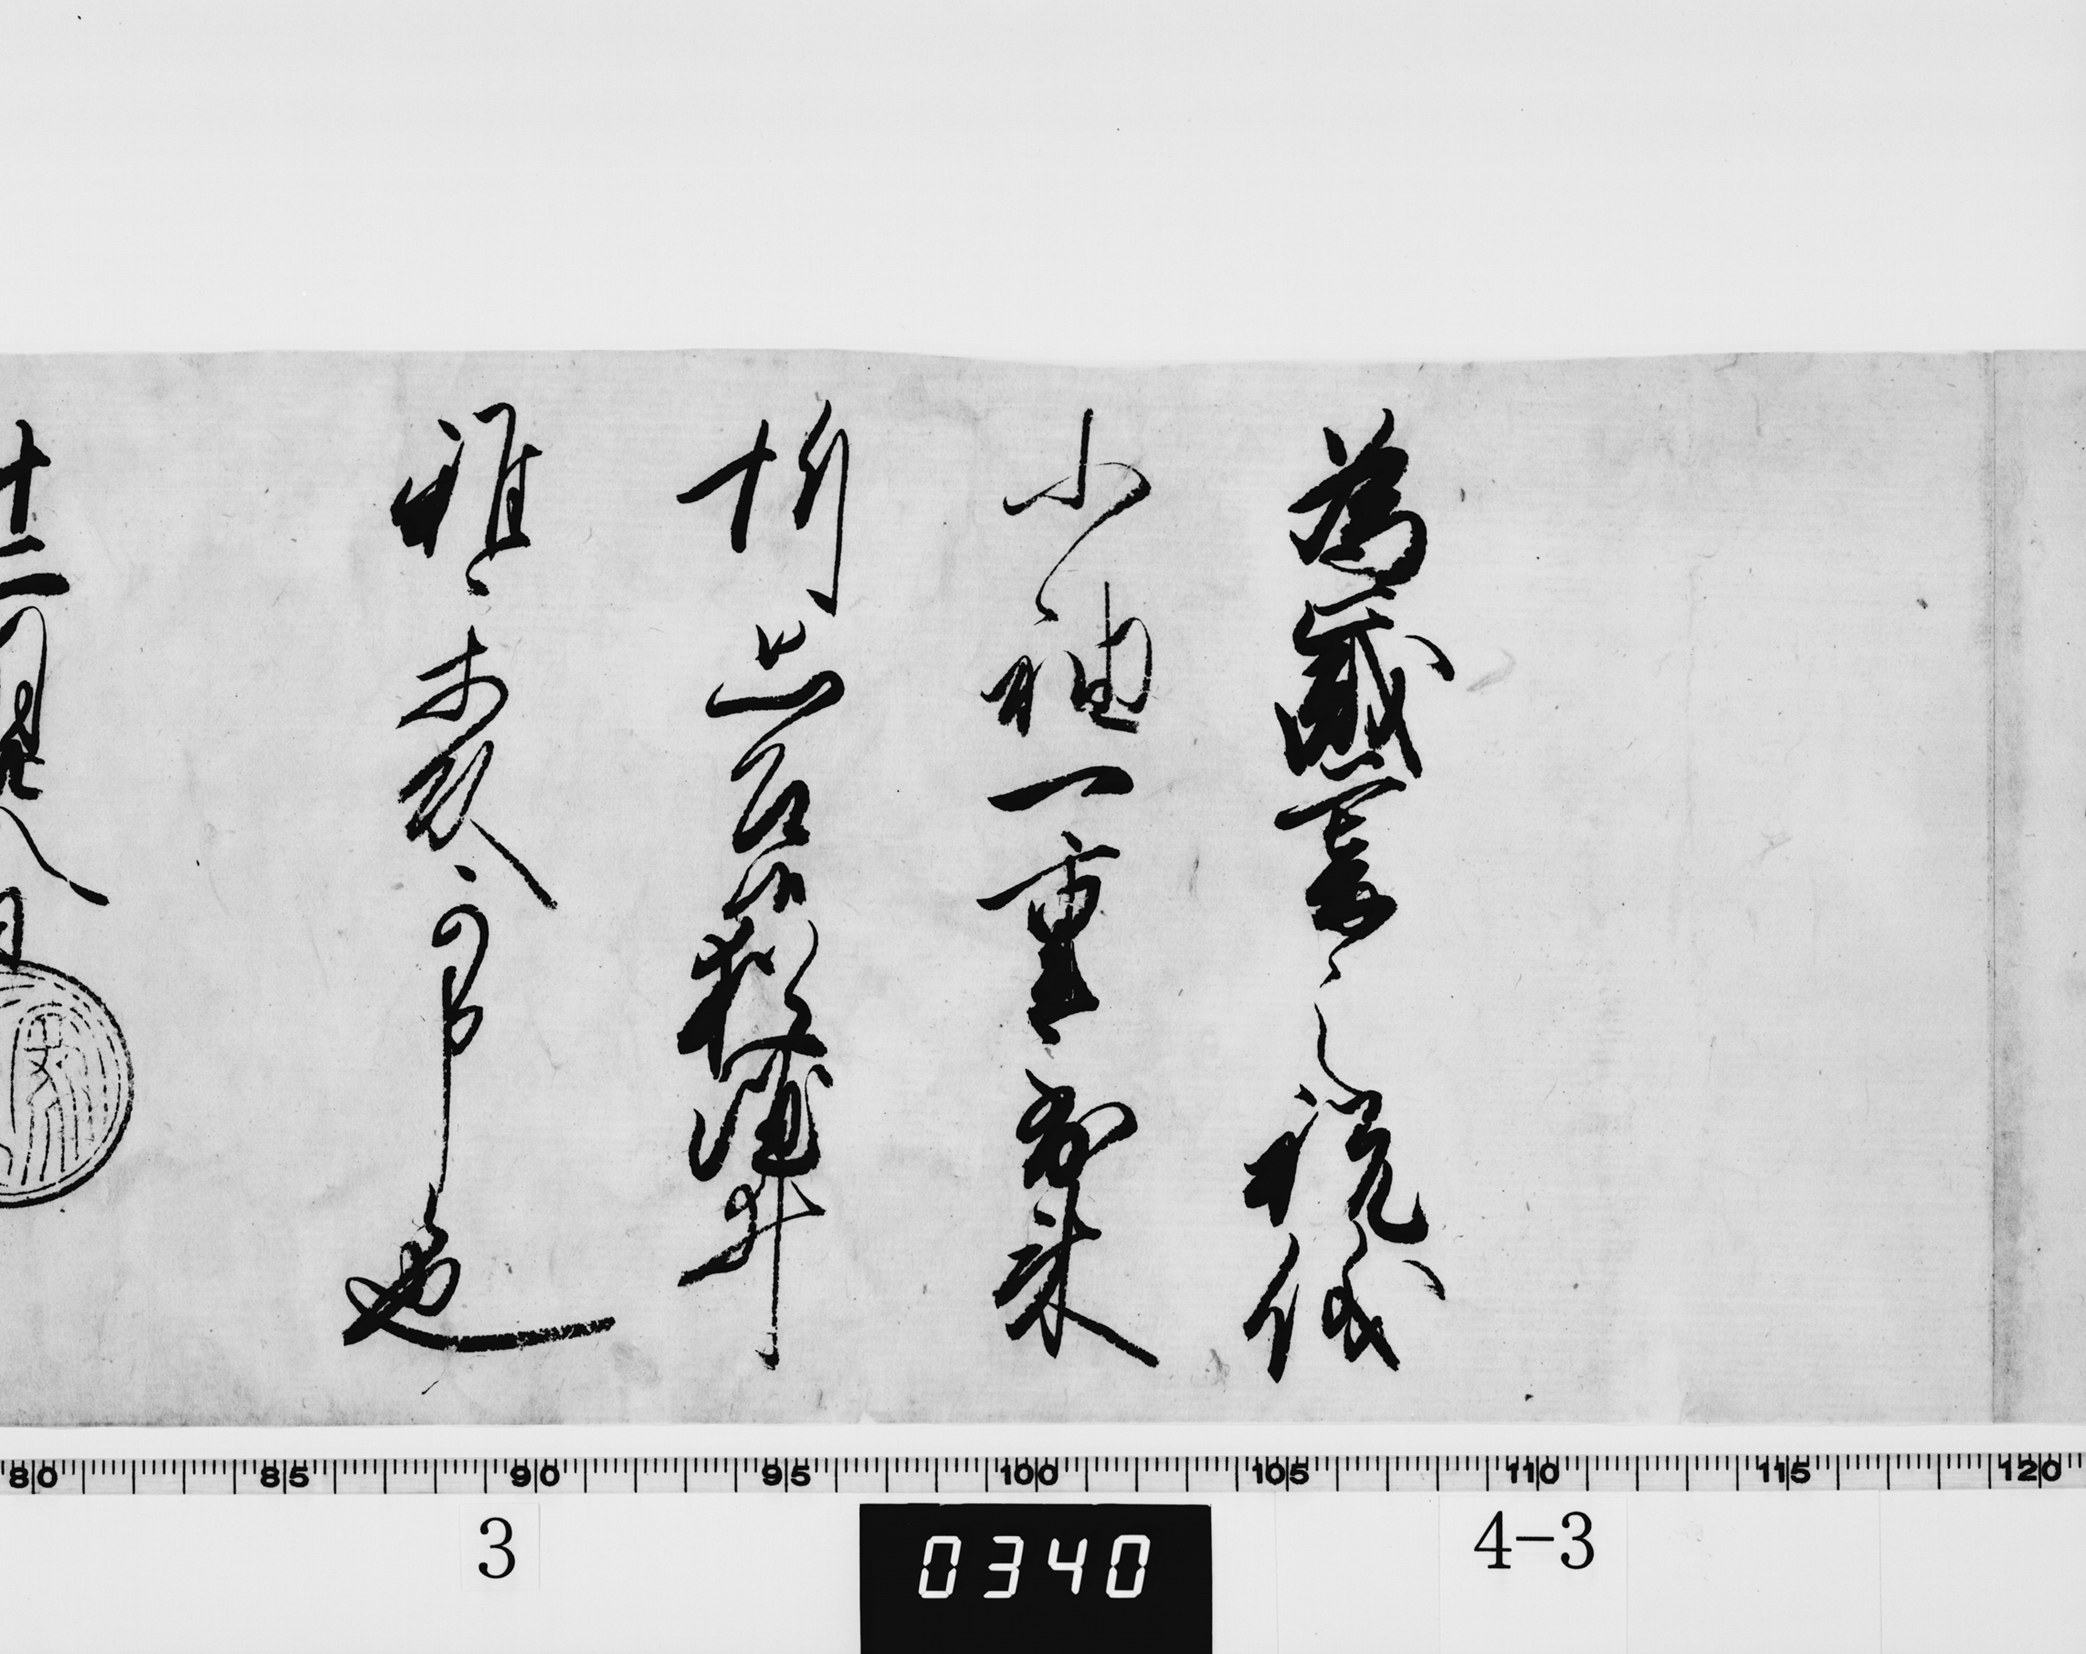 為歳暮之祝儀
小袖一重到来
悦思召候猶酒井
雅楽頭可申也
十二月廿八日
80 85 90 95 100 105 110 115 120
3
0340
4-3